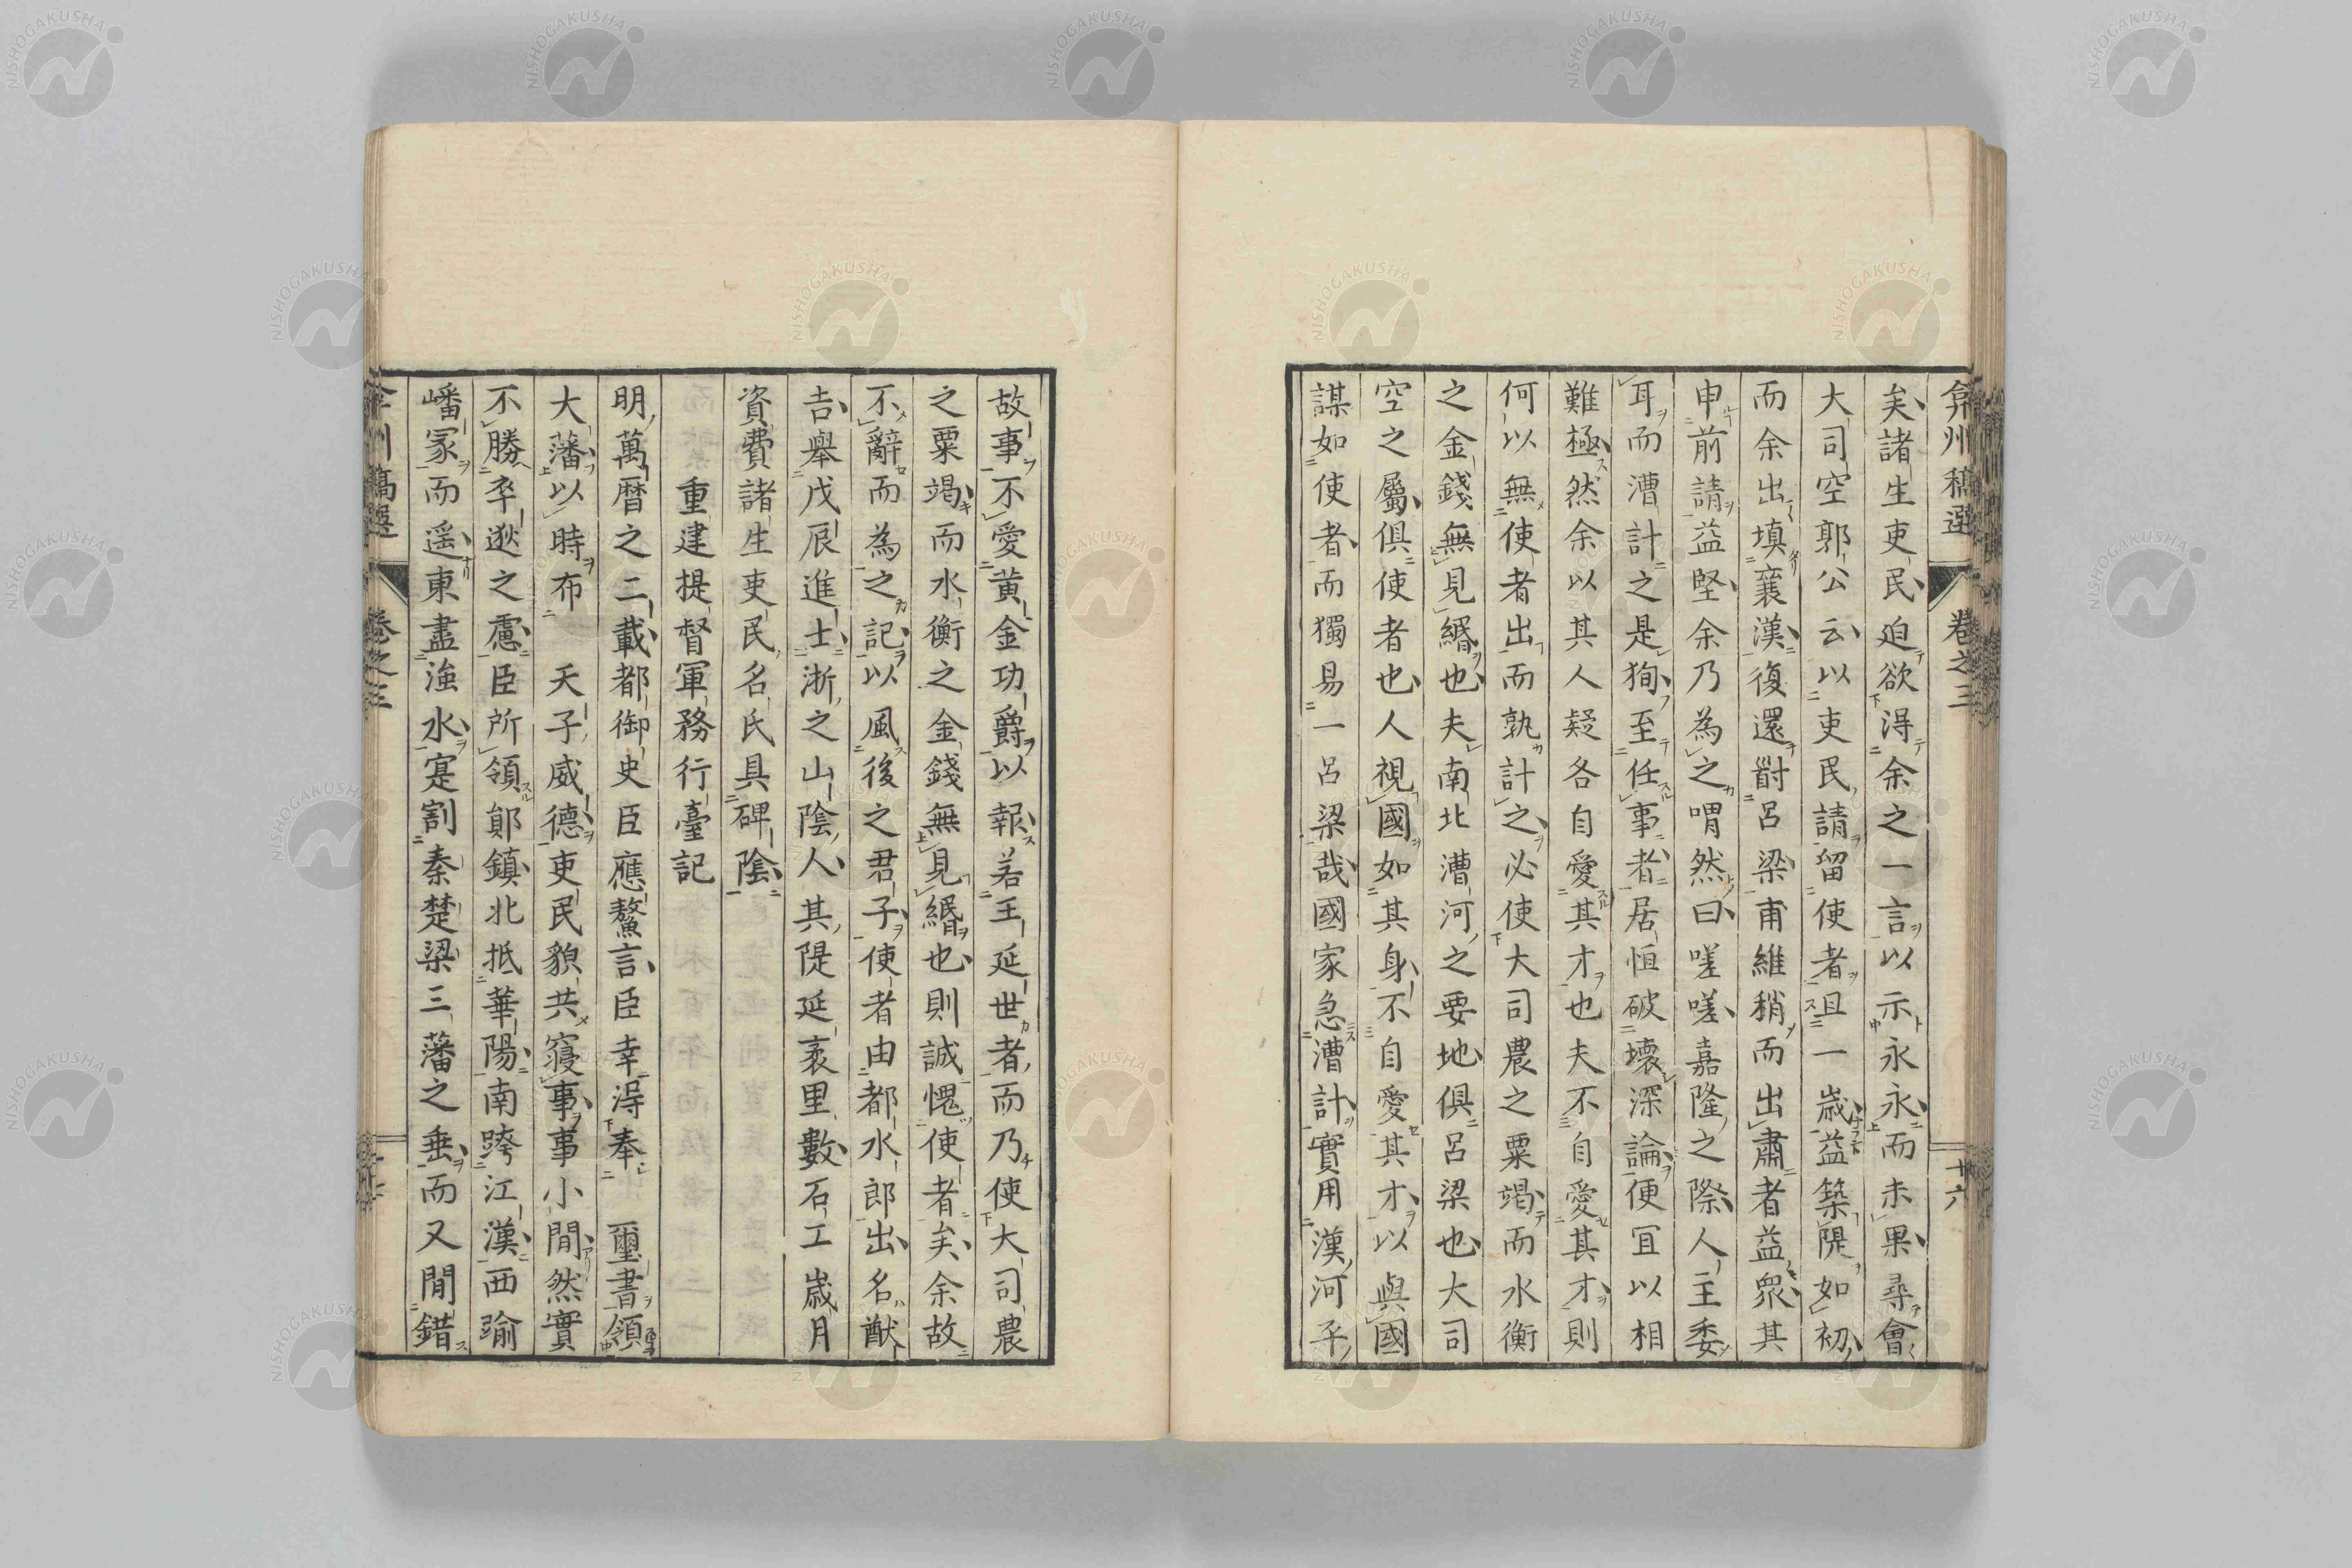 弇州稿選 卷之三 十六
矣諸生吏民迫欲得余之一言以示永永而未果尋會
大司空郭公云以吏民請留使者且一歲益築隄如初
而余出填襄漢復還對呂梁甫維稍而出肅者益衆其
申前請益堅余乃為之喟然曰嗟嗟嘉隆之際人主委
耳而漕計之是狥至任事者居恒破壞深論便宜以相
難極然余以其人疑各自愛其才也夫不自愛其才則
何以無使者出而孰計之必使大司農之粟竭而水衡
之金錢無見緡也夫南北漕河之要地俱呂梁也大司
空之屬俱使者也人視國如其身不自愛其才以與國
謀如使者而獨易一呂梁哉國家急漕計實用漢河平
故事不愛黃金功爵以報若王延世者而乃使大司農
之粟竭而水衡之金錢無見緡也則誠愧使者矣余故
不辭而為之記以風後之君子使者由都水郎出名猷
吉舉戊辰進士浙之山陰人其隄延袤里數石工歲月
資費諸生吏民名氏具碑陰
重建提督軍務行臺記
明萬曆之二載都御史臣應鰲言臣幸得奉 璽書領
大藩以時布 天子威德吏民貌共寢事事小間然實
不勝卒逖之慮臣所領鄖鎮北抵華陽南跨江漢西踰
嶓冢而遥東盡強水寔割秦楚梁三藩之垂而又間錯
弇州稿選 卷之三